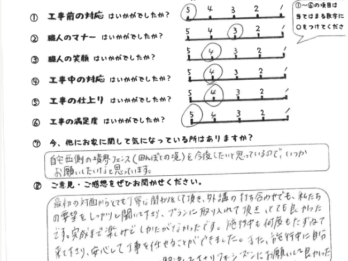 ① 工事前の対応 はいかがでしたか？ 5 4 3 2 1
② 職人のマナー はいかがでしたか？ 5 4 3 2 1
③ 職人の笑顔 はいかがでしたか？ 5 4 3 2 1
④ 工事中の対応 はいかがでしたか？ 5 4 3 2 1
⑤ 工事の仕上り はいかがでしたか？ 5 4 3 2 1
⑥ 工事の満足度 はいかがでしたか？ 5 4 3 2 1
①～⑥の項目は
当てはまる数字に
○をつけてくださ
⑦ 今、他にお家に関して気になっている所はありますか？
自宅西側の境界フェンス(田んぼとの境)を今後したいと思っているので、いつか
お願いしたいなと思っています。
⑧ ご意見・ご感想をぜひお聞かせください。
最初の対面からとても丁寧に関わって頂き、外構の打ち合わせでも、私たち
の要望をしっかりと聞いて下さり、プランに取り入れて頂き とても良かった
です。完成まで楽しみでしかたがなかったです。
安心して工事を任せることができました。また、